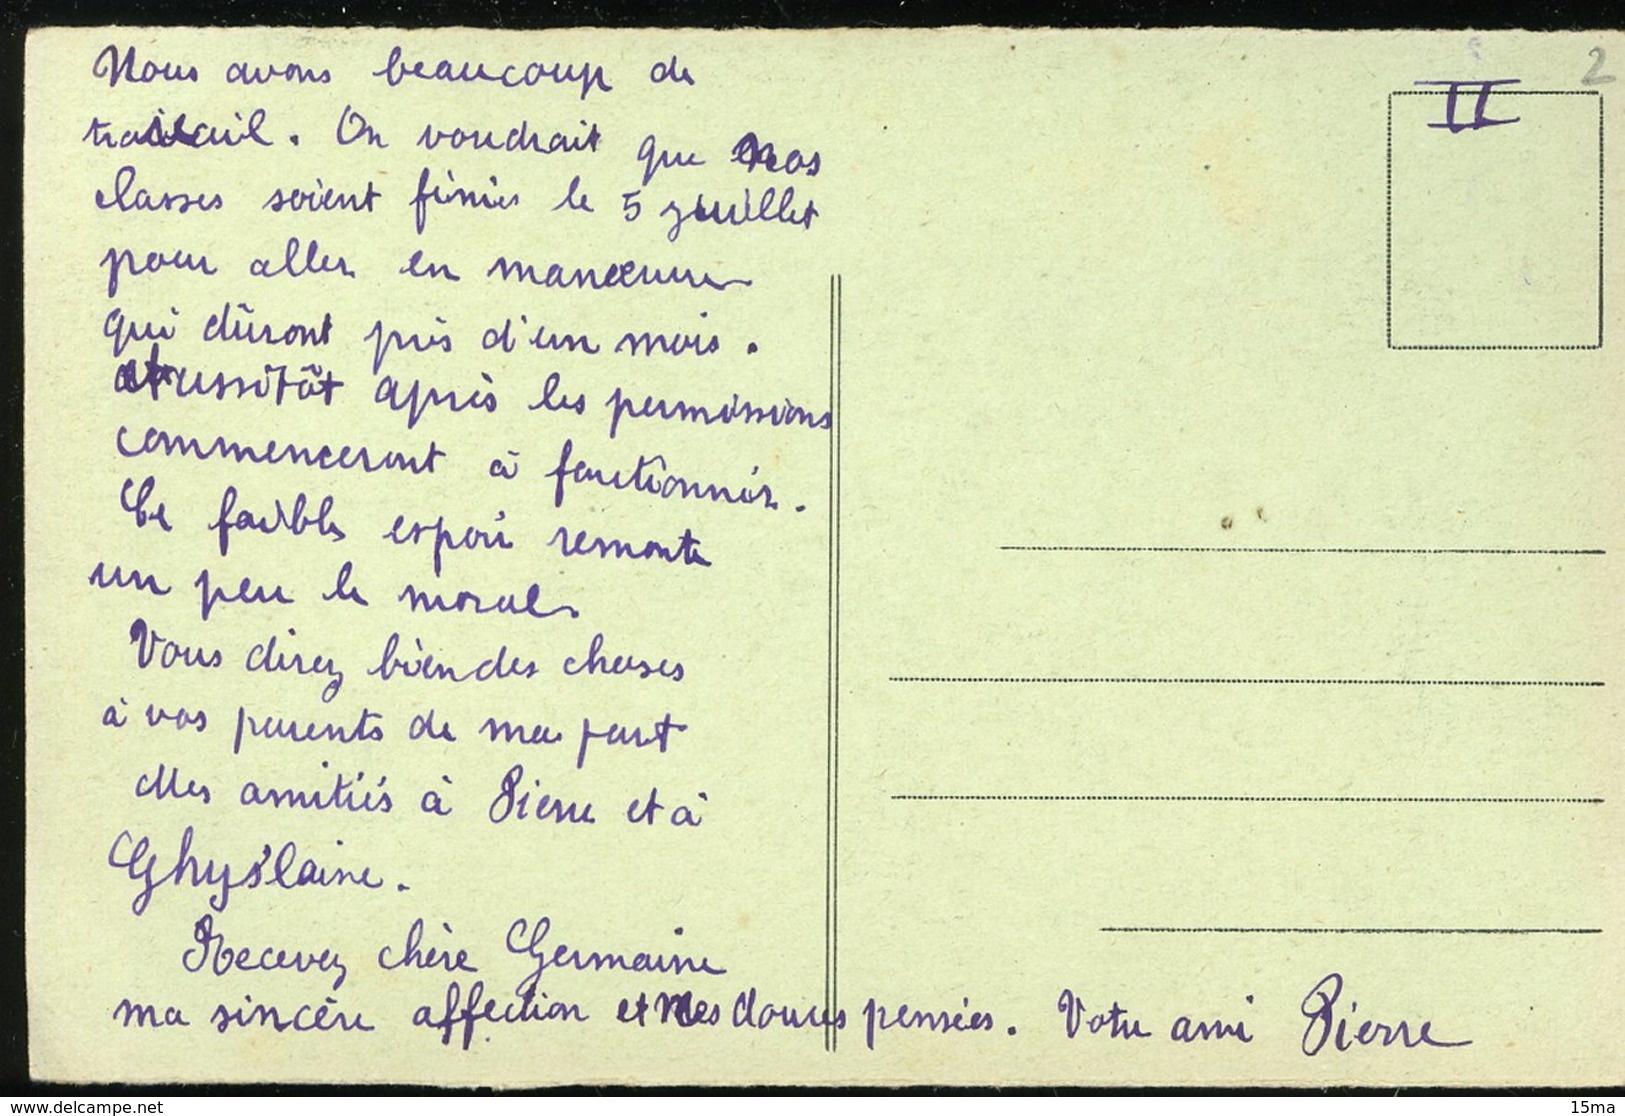 Nous avons beaucoup de
travail. On voudrait que nos
classes soient finies le 5 juillet
pour aller en manœuvre
qui dûront près d'un mois.
aussitôt après les permissions
commenceront à fonctionnér.
Ce faible espoir remonte
un peu le moral.
Vous direz bien des choses
à vos parents de ma part
Mes amitiés à Pierre et à
Ghyslaine.
Recevez chère Germaine
ma sincère affection et mes douces pensées. Votre ami Pierre
II
2
www.delcampe.net
15ma